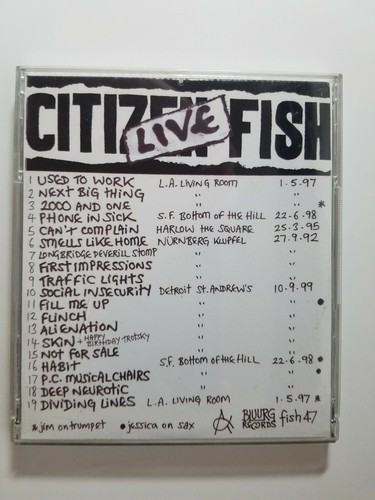 CITIZEN FISH
LIVE
1 USED TO WORK L.A. LIVING ROOM 1.5.97
2 NEXT BIG THING " "
3 2000 AND ONE " " *
4 PHONE IN SICK S.F. BOTTOM OF THE HILL 22-6-98
5 CAN'T COMPLAIN HARLOW THE SQUARE 25-3-95
6 SMELLS LIKE HOME NÜRNBERG KLUPFEL 27-9-92
7 LONGBRIDGE DEVERILL STOMP " "
8 FIRST IMPRESSIONS " "
9 TRAFFIC LIGHTS " "
10 SOCIAL INSECURITY DETROIT ST. ANDREW'S 10-9-99
11 FILL ME UP " " •
12 FLINCH " "
13 ALIENATION " "
14 SKIN + HAPPY BIRTHDAY TROTSKY " "
15 NOT FOR SALE " "
16 HABIT S.F. BOTTOM OF THE HILL 22-6-98 •
17 P.C. MUSICAL CHAIRS " " •
18 DEEP NEUROTIC " "
19 DIVIDING LINES L.A. LIVING ROOM 1.5.97 *
* jim on trumpet • jessica on sax BLUURG RECORDS fish 47